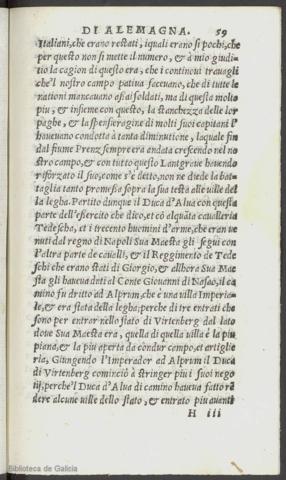 DI ALEMAGNA. 59
Italiani, che erano restati, i quali erano si pochi, che
per questo non si mette il numero, & à mio giudi-
tio la cagion di questo era, che i continoui trauagli
che'l nostro campo patiua faceuano, che di tutte le
nationi mancauano assai soldati, ma di questa molto
piu, & insieme con questo, la stanchezza delle lor
paghe, & la spensieragine di molti suoi capitani l'
haueuano condotta à tanta diminutione, laquale fin
dal fiume Prenz sempre era andata crescendo nel no
stro campo, & con tutto questo Lantgraue hauendo
riforzato il suo, come s'è detto, non ne diede la bat-
taglia tanto promessa sopra la sua testa alle uille del
la legha. Partito dunque il Duca d'Alua con questa
parte dell'essercito che dico, et cō alquāta caualleria
Tedescha, et i trecento huomini d'arme, che eran ue
nuti dal regno di Napoli Sua Maesta gli segui con
l'altra parte de caualli, & il Reggimento de Tede
schi che erano stati di Giorgio, & allhora Sua Mae
sta gli haueua dati al Conte Giouanni di Nasao, il ca
mino fu dritto ad Alprum, che è una uilla Imperia-
le, & era stata della legha; perche di tre entrati che
sono per entrar nello stato di Virtenberg dal lato
doue Sua Maesta era, quella di quella uilla è la piu
piana, & la piu aperta da condur campo, et artiglie
ria, Giungendo l'Imperador ad Alprum il Duca
di Virtenberg cominciò à stringer piu i suoi nego
tij, perche'l Duca d'Alua di camino haueua fatto rē
dere alcune uille dello stato, & entrato piu auanti
H iii
Biblioteca de Galicia